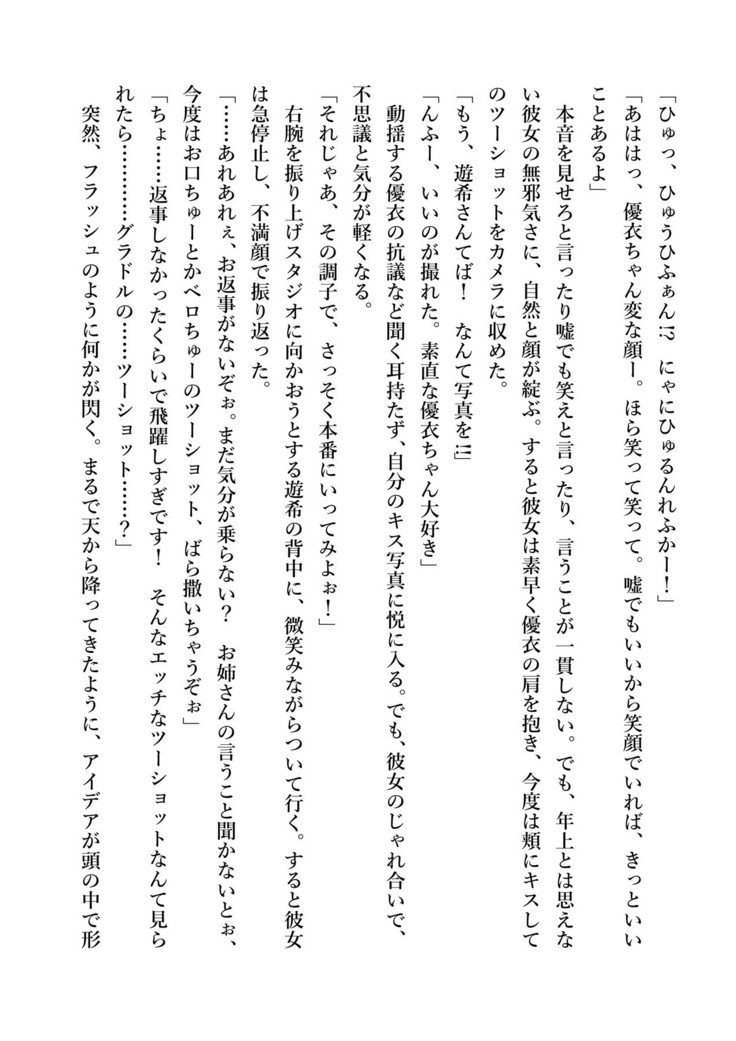 「ひゅっ、ひゅうひふぁん!?　にゃにひゅるんれふかー！」
「あははっ、優衣ちゃん変な顔ー。ほら笑って笑って。嘘でもいいから笑顔でいれば、きっといい
ことあるよ」
　本音を見せろと言ったり嘘でも笑えと言ったり、言うことが一貫しない。でも、年上とは思えな
い彼女の無邪気さに、自然と顔が綻ぶ。すると彼女は素早く優衣の肩を抱き、今度は頬にキスして
のツーショットをカメラに収めた。
「もう、遊希さんてば！　なんて写真を!!!」
「んふー、いいのが撮れた。素直な優衣ちゃん大好き」
　動揺する優衣の抗議など聞く耳持たず、自分のキス写真に悦に入る。でも、彼女のじゃれ合いで、
不思議と気分が軽くなる。
「それじゃあ、その調子で、さっそく本番にいってみよぉ！」
　右腕を振り上げスタジオに向かおうとする遊希の背中に、微笑みながらついて行く。すると彼女
は急停止し、不満顔で振り返った。
「……あれあれぇ、お返事がないぞぉ。まだ気分が乗らない？　お姉さんの言うこと聞かないとぉ、
今度はお口ちゅーとかベロちゅーのツーショット、ばら撒いちゃうぞぉ」
「ちょ……返事しなかったくらいで飛躍しすぎです！　そんなエッチなツーショットなんて見ら
れたら…………グラドルの……ツーショット……？」
　突然、フラッシュのように何かが閃く。まるで天から降ってきたように、アイデアが頭の中で形